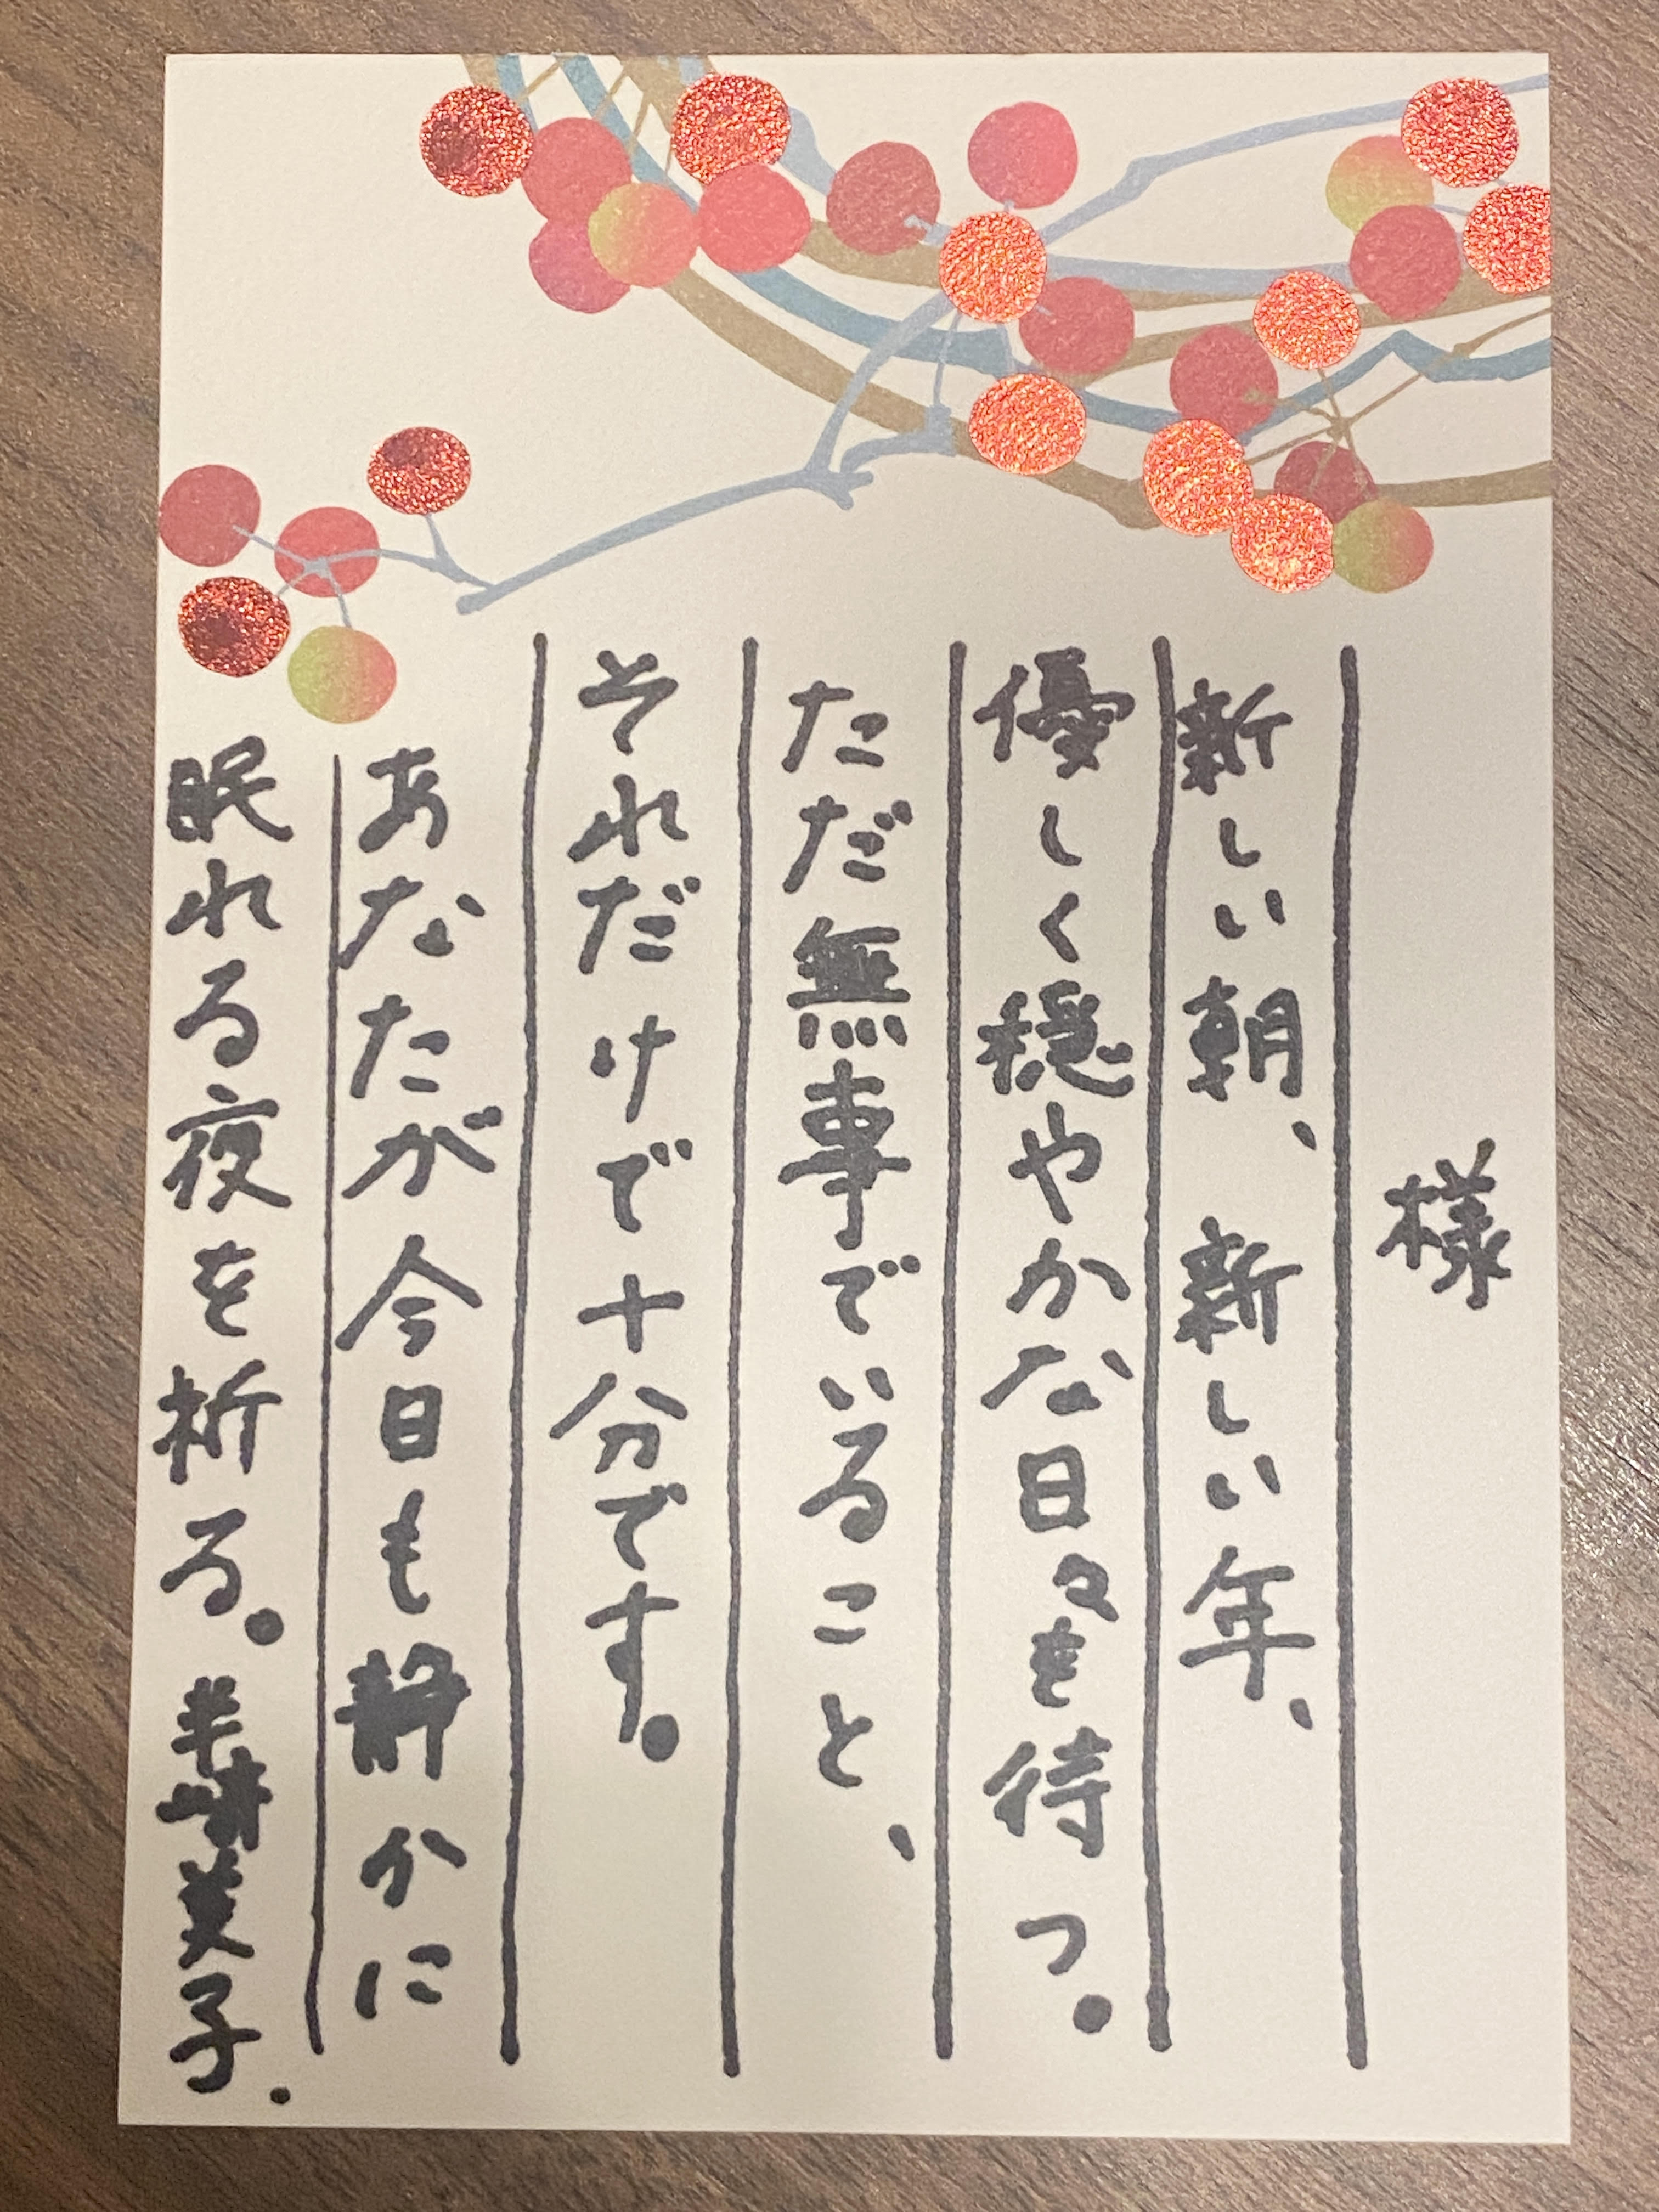 様
新しい朝、新しい年、
優しく穏やかな日々を待つ。
ただ無事でいること、
それだけで十分です。
あなたが今日も静かに
眠れる夜を祈る。半崎美子.